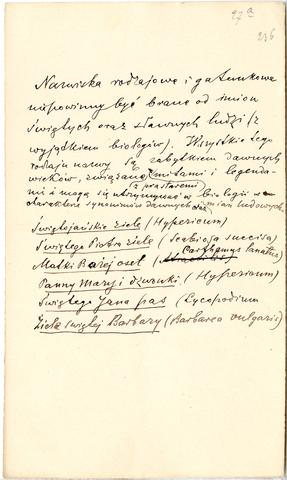 27a
236
Nazwiska rodzajowe i gatunkowe
niepowinny być brane od imion
świętych oraz sławnych ludzi (z
wyjątkiem biologów). Wszystkie tego
rodzaju nazwy są zabytkiem dawnych
wieków, związane z mitami i legenda-
z prastaremi
mi i mogą się utrzymywać w biologii w
charakterze synonimów dawnych imion ludowych.
Świętojańskie ziele (Hypericum)
Świętego Piotra ziele (Scabiosa succisa)
Carthamus lanatus
Matki Bożej oset
Panny Maryi dzwonki (Hypericum)
Świętego Jana pas (Lycopodium
Ziele świętej Barbary (Barbarea vulgaris)